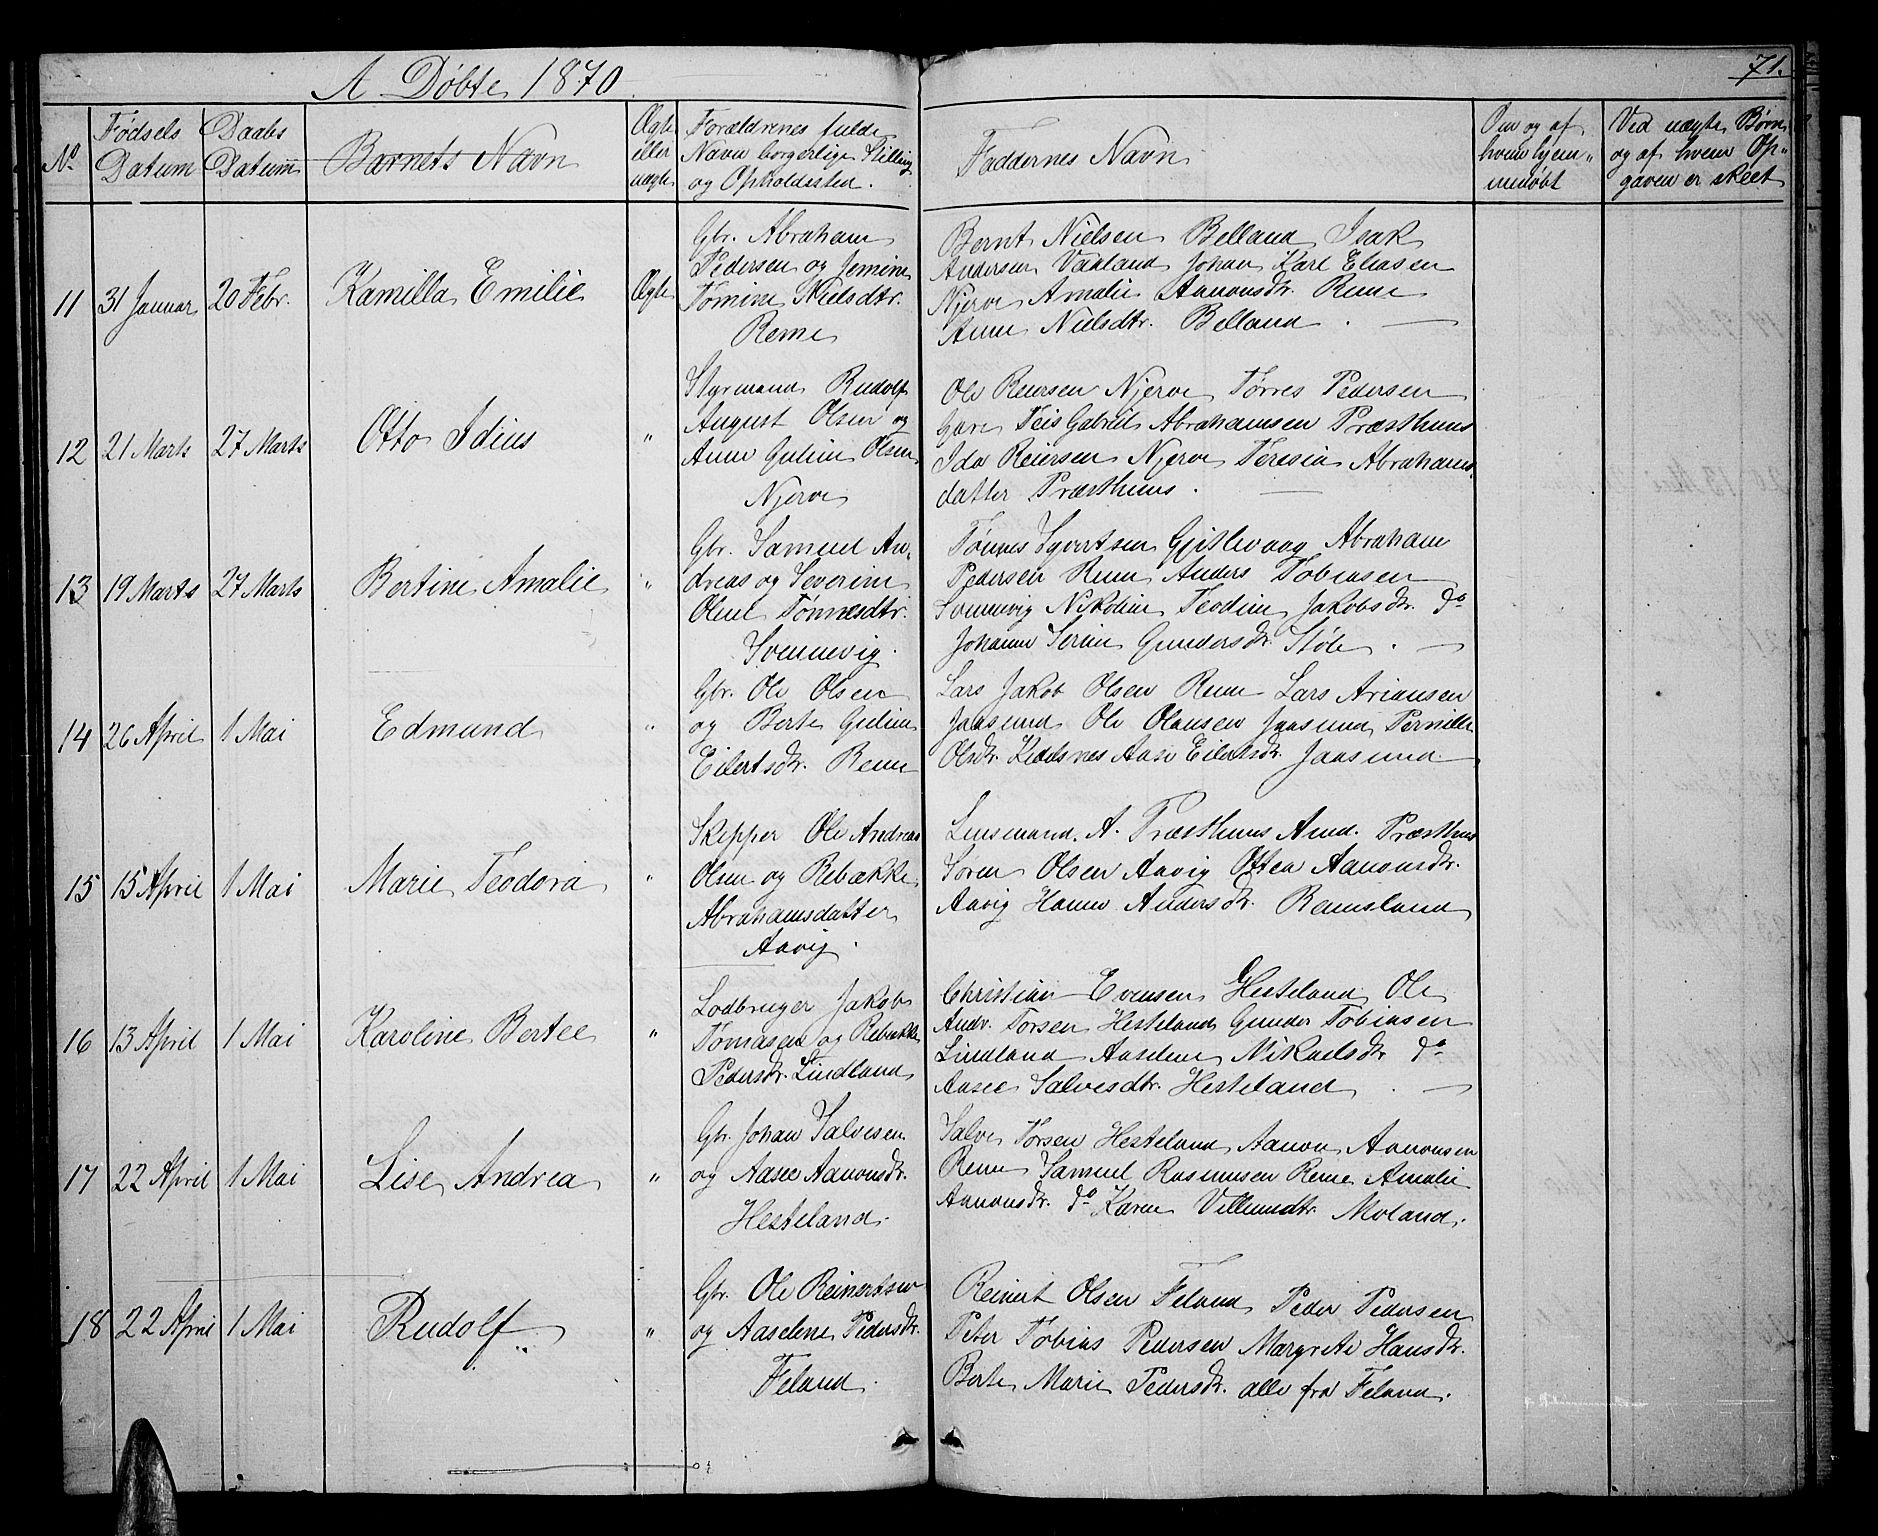 A Døbte 1870
71.
No
Fødsels Datum
Daabs Datum
Barnets Navn
Ægte eller uægte
Forældrenes fulde Navn borgerlige Stilling og Opholdssted.
Faddernes Navn
Om og af hvem hjemmedøbt
Ved uægte Børn og af hvem Opgaven er skeet
11 31 Januar 20 Febr. Kamilla Emilie Ægte
Gbr. Abraham
Pedersen og Jemine
Tomine Nielsdtr.
Reme
Bernt Nielsen Belland Isak
Andersen Vaaland Johan Karl Eliasen
Njerve Amalie Aanonsdr. Reme
Anne Nielsdtr. Belland.
12 21 Marts 27 Marts Otto Idius "
Styrmand Rudolf
August Olsen og
Anne Guline Olsen
Njerve
Ole Reiersen Njerve Tørres Pedersen
Gare Teis Gabriel Abrahamsen Præsthuus
Ida Reiersen Njerve Teresia Abrahams
datter Præsthuus.
13 19 Marts 27 Marts Bertine Amalie "
Gbr. Samuel An
dreas og Severine
Oline Tønnesdtr.
Svennevig.
Tønnes Syvertsen Gjislevaag Abraham
Pedersen Reme Anders Tobiasen
Svennevig Nikoline Teodine Jakobsdr. do
Johanne Serine Gundersdr. Støle.
14 26 April 1 Mai Edmund "
Gbr. Ole Olsen
og Berte Guline
Eilertsdr. Reme
Lars Jakob Olsen Reme Lars Ariansen
Jaasund Ole Olausen Jaasund Pernille
Olsdr. Aase Eilertsdr. Jaasund.
15 15 April 1 Mai Marie Teodora "
Skipper Ole Andreas
Olsen og Rebække
Abrahamsdatter
Aavig.
Lensmand. A. Præsthuus Amd. Præsthuus
Søren Olsen Aavig Ottea Aanonsdr.
Aavig Hanne Andersdr. Ramsland
16 13 April 1 Mai Karoline Bertee "
Lodbruger Jakob
Tomasen og Rebække
Pedersdr. Lindland
Christian Evensen Hesteland Ole
Andr. Torsen Hesteland Gunder Tobiasen
Lindland Aaselene Mikaelsdr. do
Aasee Salvesdtr. Hesteland.
17 22 April 1 Mai Lise Andrea "
Gbr. Johan Salvesen
og Aasee Aanonsdr.
Hesteland.
Salve Torsen Hesteland Aanon Aanonsen
Reme Samuel Rasmusen Reme Amalie
Aanonsdr. do Karen Villumsdtr. Moland.
18 22 April 1 Mai Rudolf "
Gbr. Ole Reinertsen
og Aaselene Pedersdr.
Feland.
Reinert Olsen Feland Peder Pedersen
Peter Tobias Pedersen Margrete Hansdr.
Berte Marie Pedersdr. alle fra Feland.